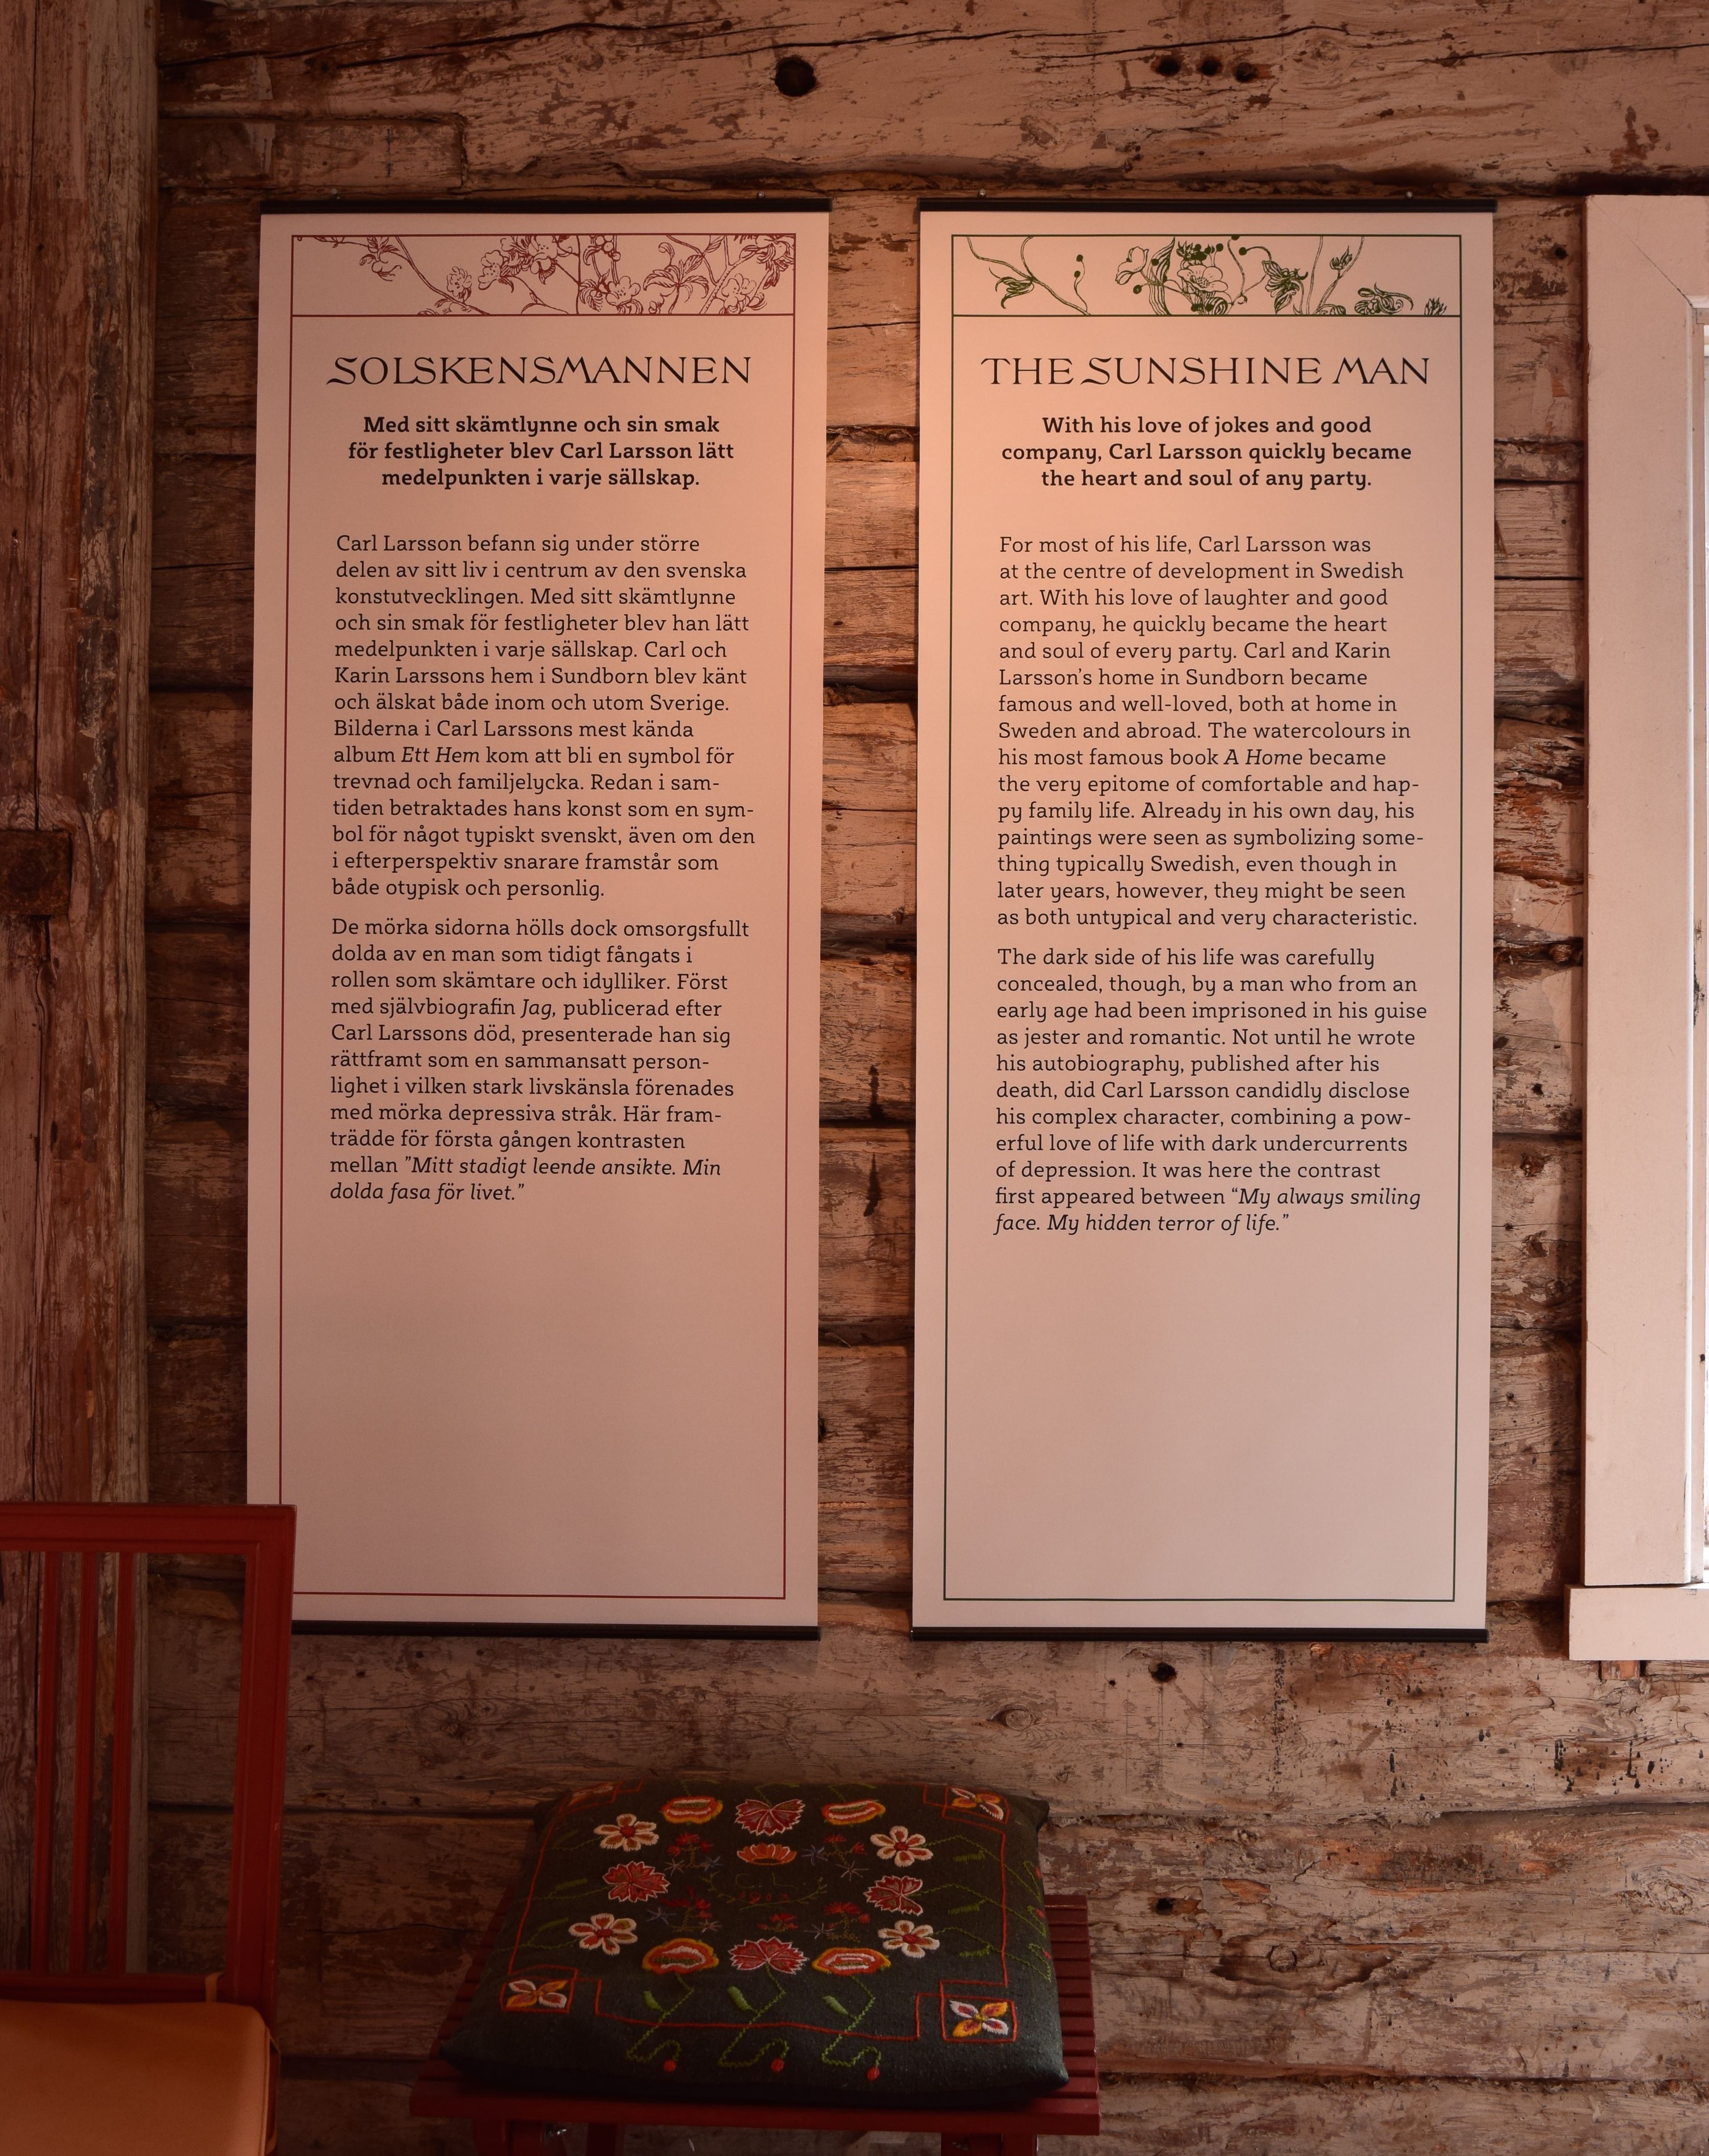 SOLSKENSMANNEN
Med sitt skämtlynne och sin smak
för festligheter blev Carl Larsson lätt
medelpunkten i varje sällskap.
Carl Larsson befann sig under större
delen av sitt liv i centrum av den svenska
konstutvecklingen. Med sitt skämtlynne
och sin smak för festligheter blev han lätt
medelpunkten i varje sällskap. Carl och
Karin Larssons hem i Sundborn blev känt
och älskat både inom och utom Sverige.
Bilderna i Carl Larssons mest kända
album Ett Hem kom att bli en symbol för
trevnad och familjelycka. Redan i sam-
tiden betraktades hans konst som en sym-
bol för något typiskt svenskt, även om den
i efterperspektiv snarare framstår som
både otypisk och personlig.
De mörka sidorna hölls dock omsorgsfullt
dolda av en man som tidigt fångats i
rollen som skämtare och idylliker. Först
med självbiografin Jag, publicerad efter
Carl Larssons död, presenterade han sig
rättframt som en sammansatt person-
lighet i vilken stark livskänsla förenades
med mörka depressiva stråk. Här fram-
trädde för första gången kontrasten
mellan ”Mitt stadigt leende ansikte. Min
dolda fasa för livet.”
THE SUNSHINE MAN
With his love of jokes and good
company, Carl Larsson quickly became
the heart and soul of any party.
For most of his life, Carl Larsson was
at the centre of development in Swedish
art. With his love of laughter and good
company, he quickly became the heart
and soul of every party. Carl and Karin
Larsson’s home in Sundborn became
famous and well-loved, both at home in
Sweden and abroad. The watercolours in
his most famous book A Home became
the very epitome of comfortable and hap-
py family life. Already in his own day, his
paintings were seen as symbolizing some-
thing typically Swedish, even though in
later years, however, they might be seen
as both untypical and very characteristic.
The dark side of his life was carefully
concealed, though, by a man who from an
early age had been imprisoned in his guise
as jester and romantic. Not until he wrote
his autobiography, published after his
death, did Carl Larsson candidly disclose
his complex character, combining a pow-
erful love of life with dark undercurrents
of depression. It was here the contrast
first appeared between “My always smiling
face. My hidden terror of life.”